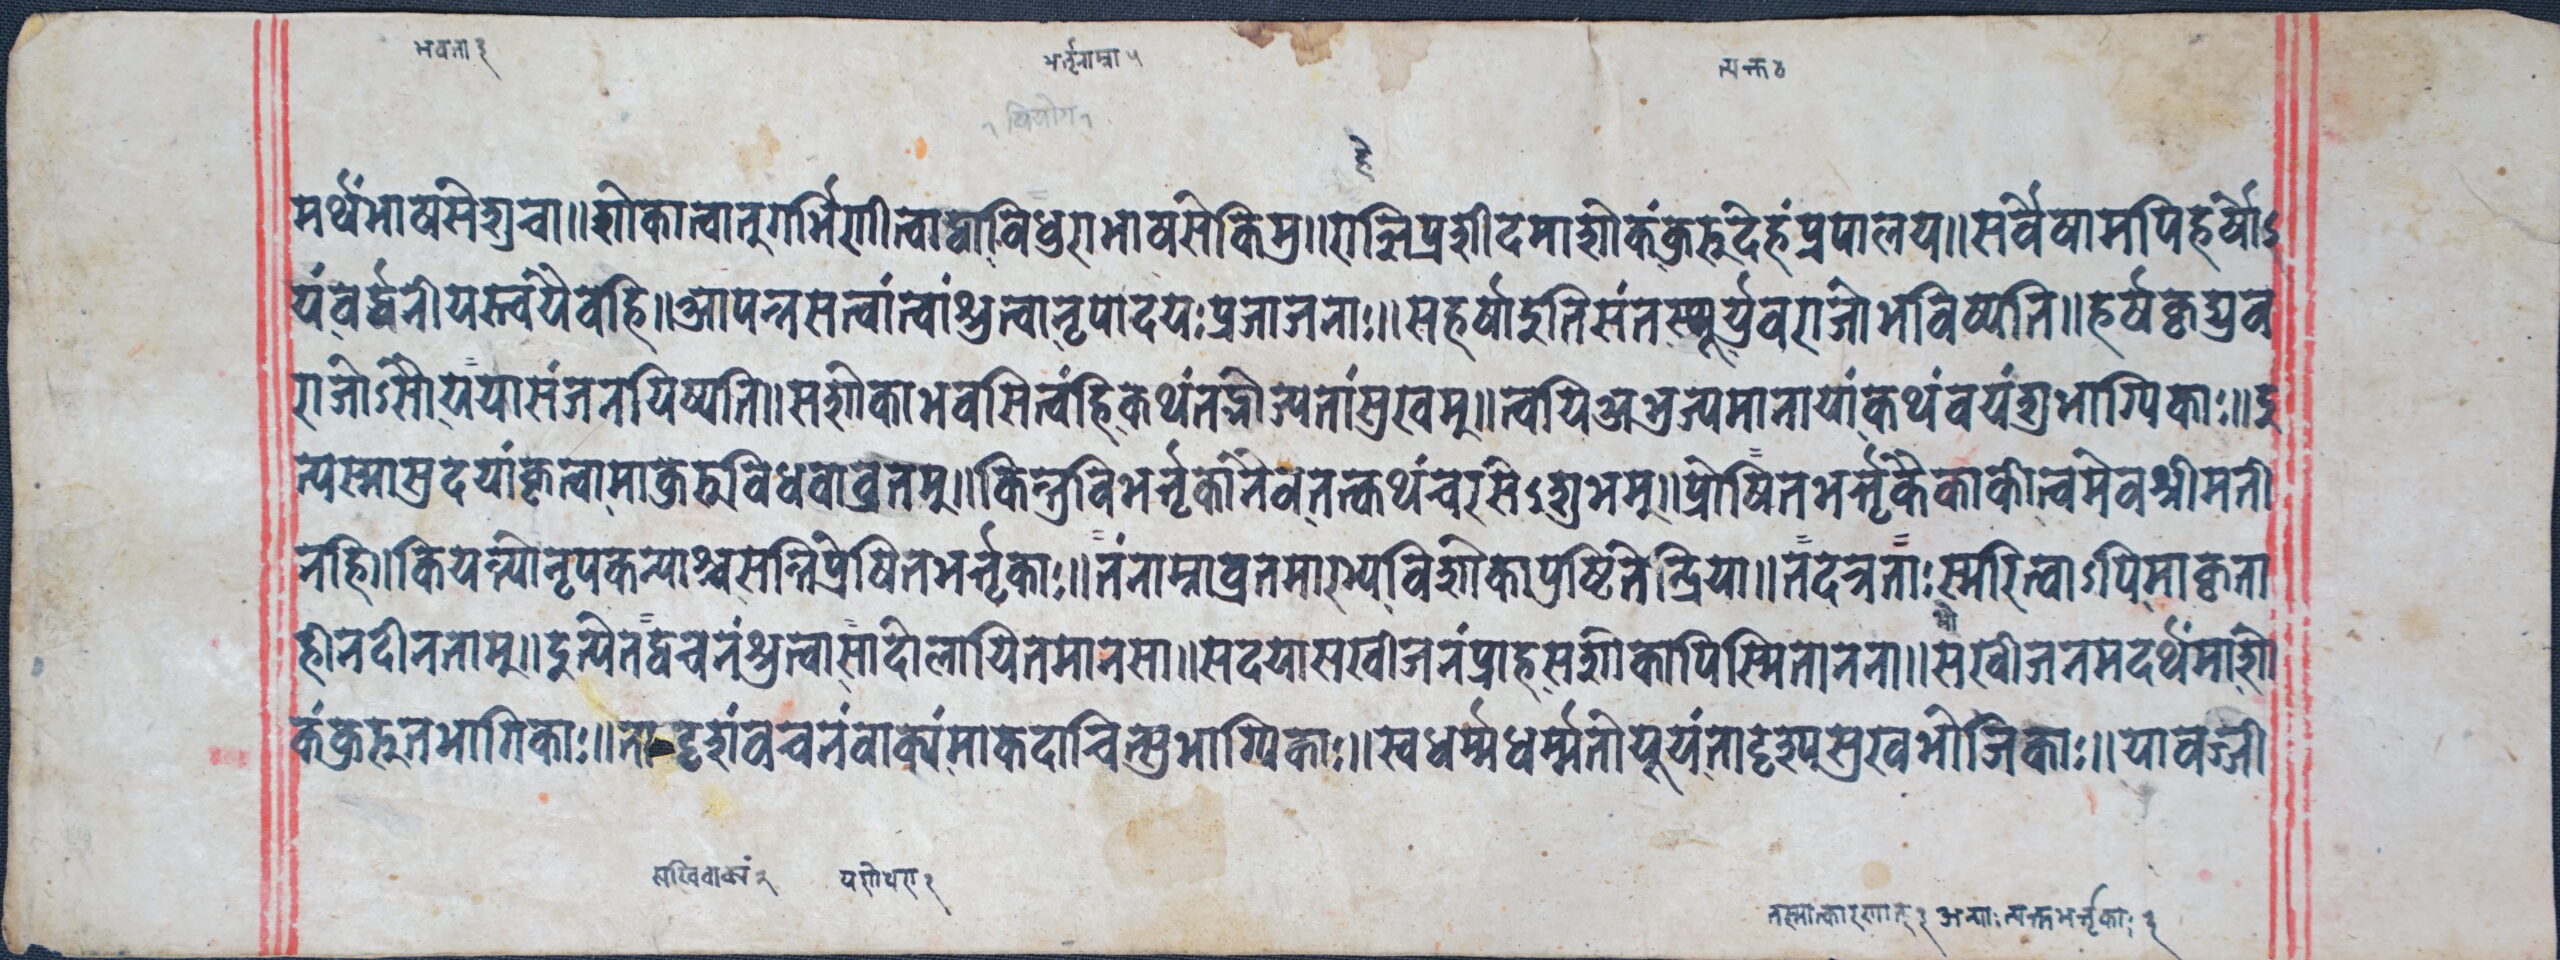 भवता३
भर्तृनाम्ना५
त्यक्त४
१ वियोग१
हे
मर्थंभाषसेशुचा॥शोकात्वानुगर्भिणीत्वाद्वाविधुराभाषसेकिमु॥राज्ञिप्रशीदमाशोकंकुरुदेहंप्रपालय॥सर्वेषामपिहर्षोऽ
यंवर्द्धनीयस्त्वयैवहि॥आपन्नसत्वांत्वांश्रुत्वानृपादयःप्रजाजनाः॥सहर्षा
राजोऽसौययासंजनयिष्यति॥सशोकाभवसित्वंहिकथं
त्यस्मासुदयांकृत्वामाकुरुविधवाव्रतमु॥किन्तुविभर्त्तृकानैवतत्कथंचरसेऽशुभमु॥प्रोषितभर्त्तृकैकाकीत्वमेवश्रीमती
नहि॥कियन्त्योनृपकन्याश्चसन्तिप्रेषितभर्त्तृकाः॥तंनाम्नाव्रतमारभ्यविशोकापुष्टितेन्द्रिया॥तदन्नताःस्मरित्वाऽपिमाकृता
हीनदीनतामु॥इत्येतद्वचनंश्रुत्वासादोलायितमानसा॥सदयासखीजनंप्राहसशोकापिस्मितानना॥सखीजनमदर्थंमाशो
भो
कंकुरुतभागिकाः॥
वचनंवाक्यंमाकदाचित्सुभाग्यिकाः॥स्वधर्म्मधर्म्मतोयूयंतादृश्यसुखभोजिकाः॥यावज्जी
सखिवाक्यं२
यशोधरा२
तस्मात्कारणात्२ अन्याःत्यक्तभर्त्तृकाः२